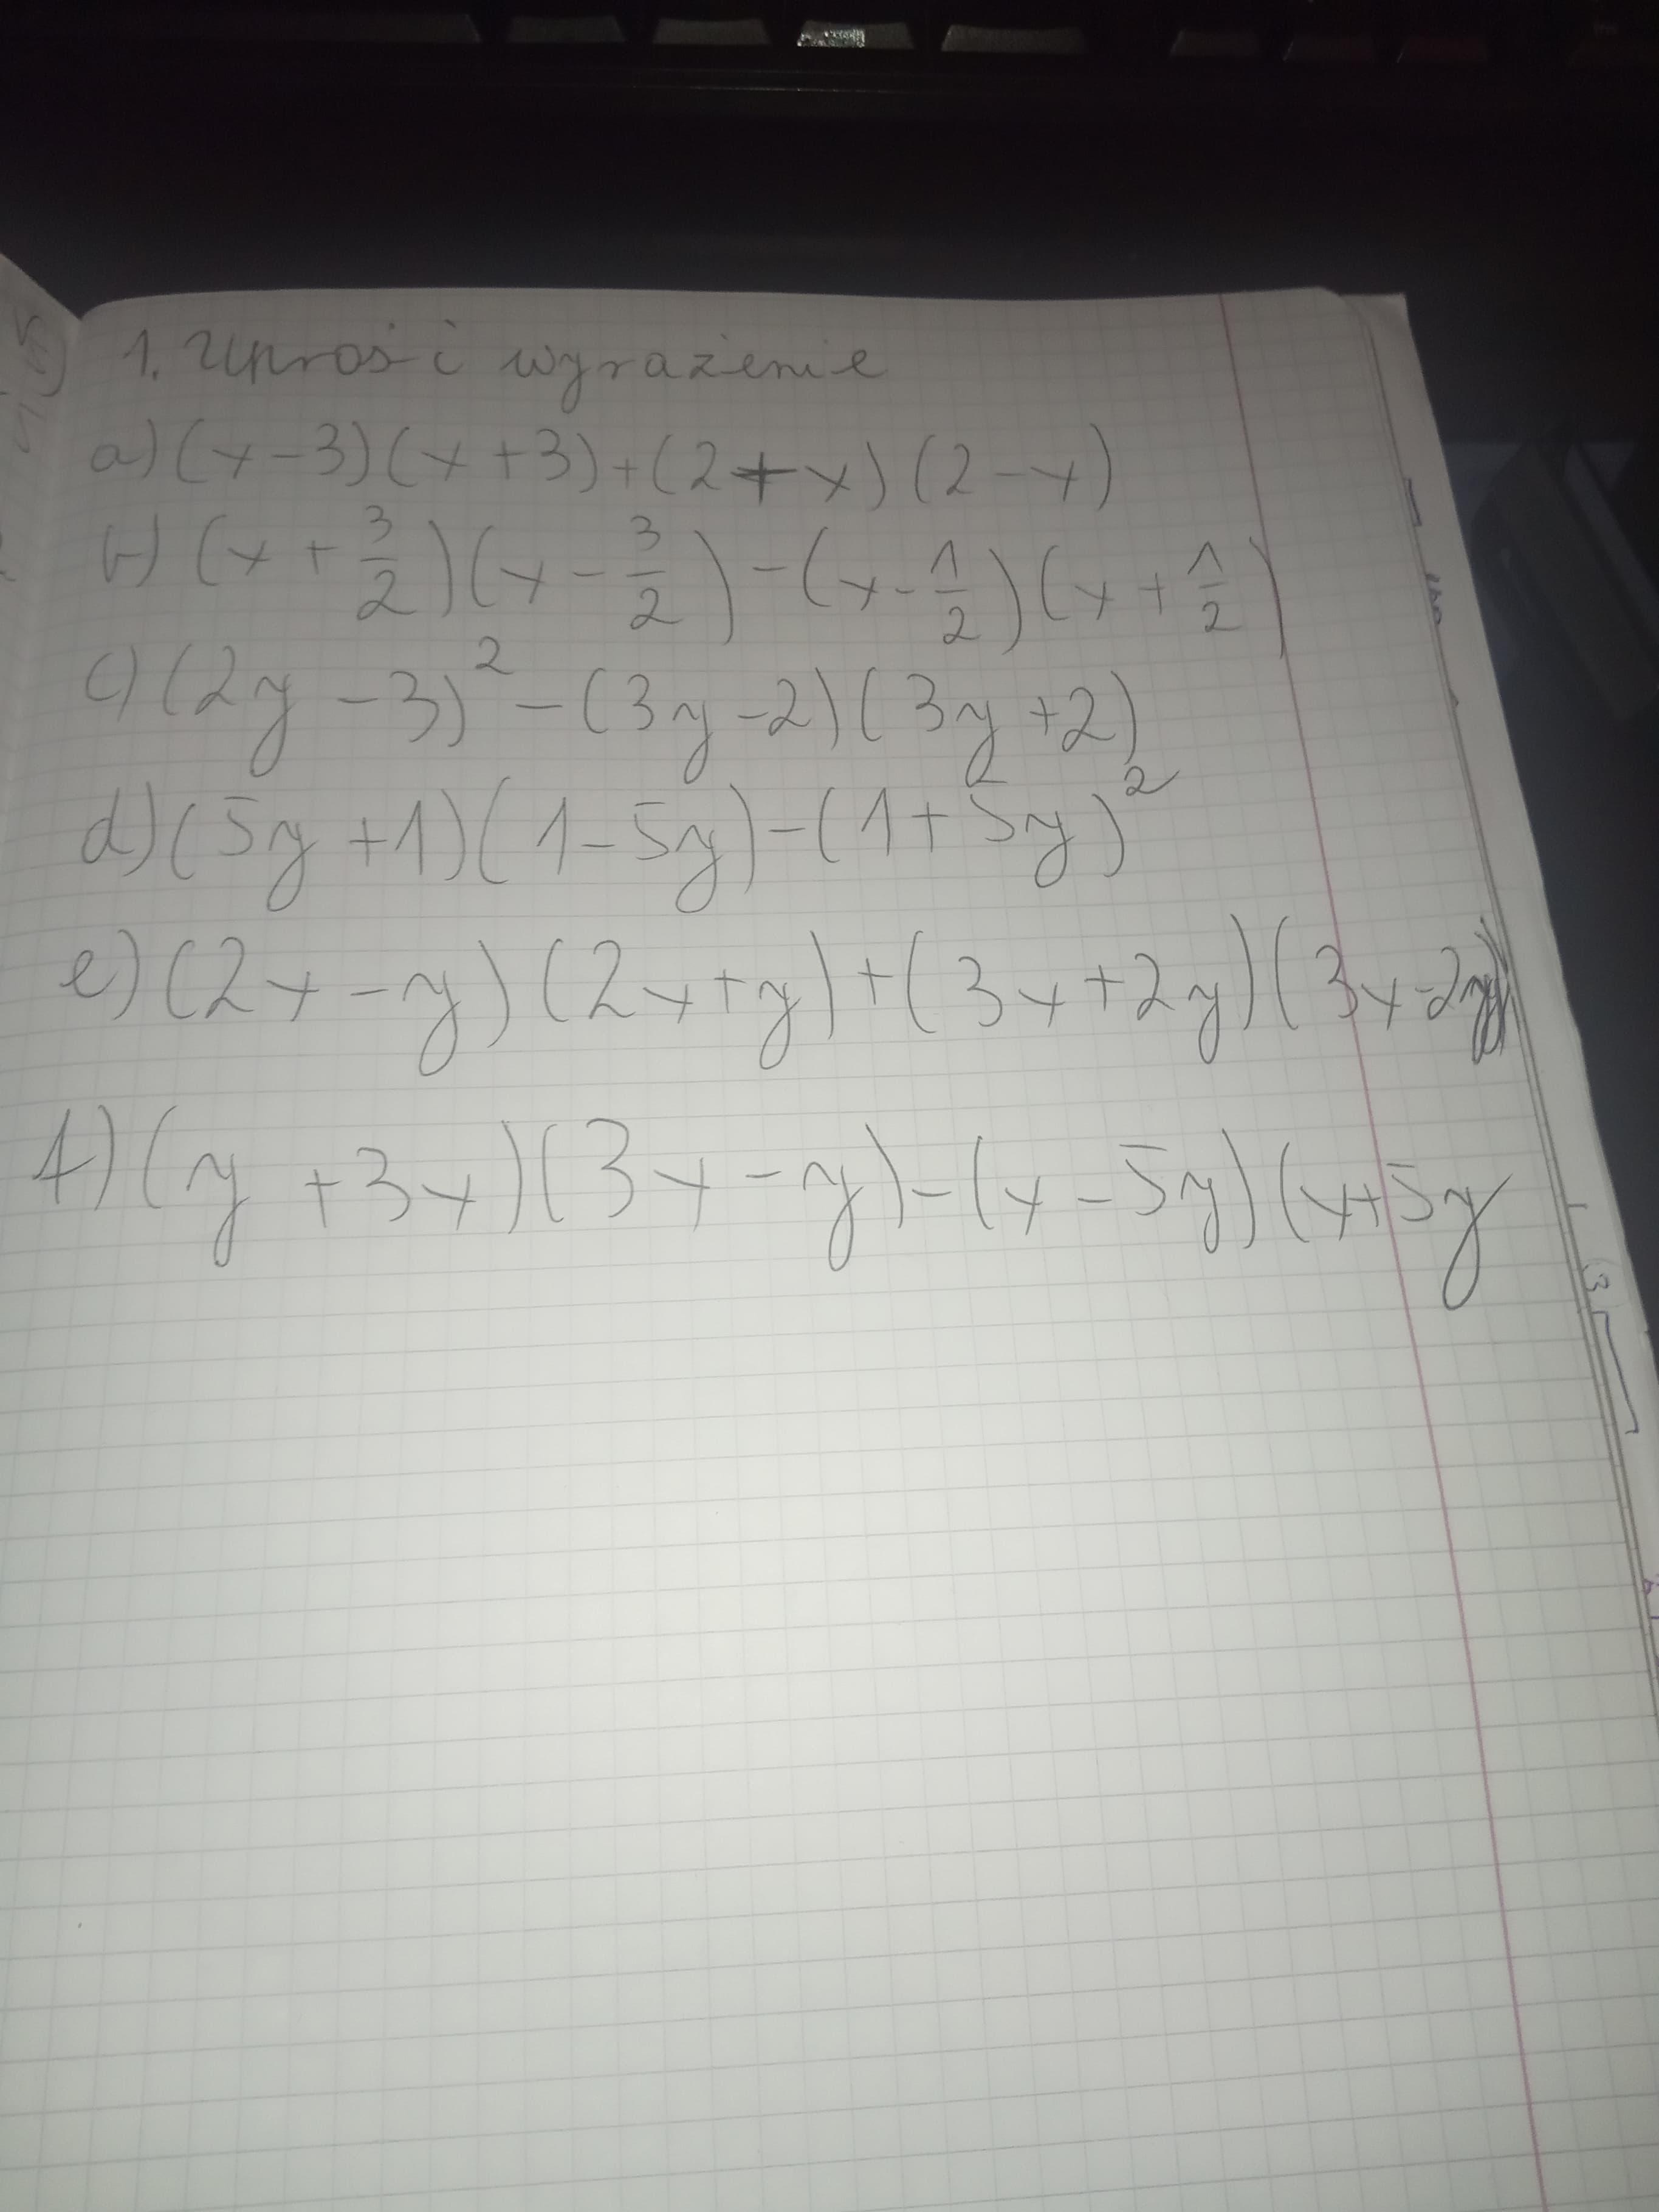 1. Uprość wyrażenie
a) (x-3)(x+3)+(2+x)(2-x)
b) (x+3/2)(x-3/2)-(x-1/2)(x+1/2)
c) (2y-3)²-(3y-2)(3y+2)
d) (5y+1)(1-5y)-(1+5y)²
e) (2x-y)(2x+y)+(3x+2y)(3x-2y)
f) (y+3x)(3x-y)-(x-5y)(x+5y